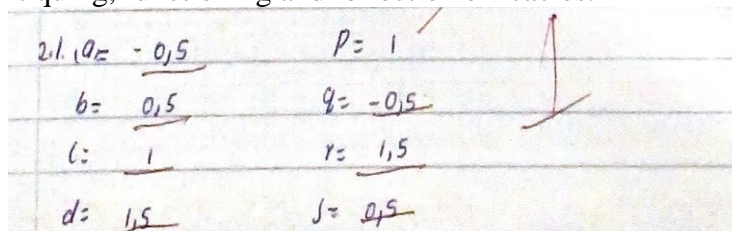 2.1.1 a= -0,5 p= 1
b= 0,5 q= -0,5
c= 1 r= 1,5
d= 1,5 s= 0,5